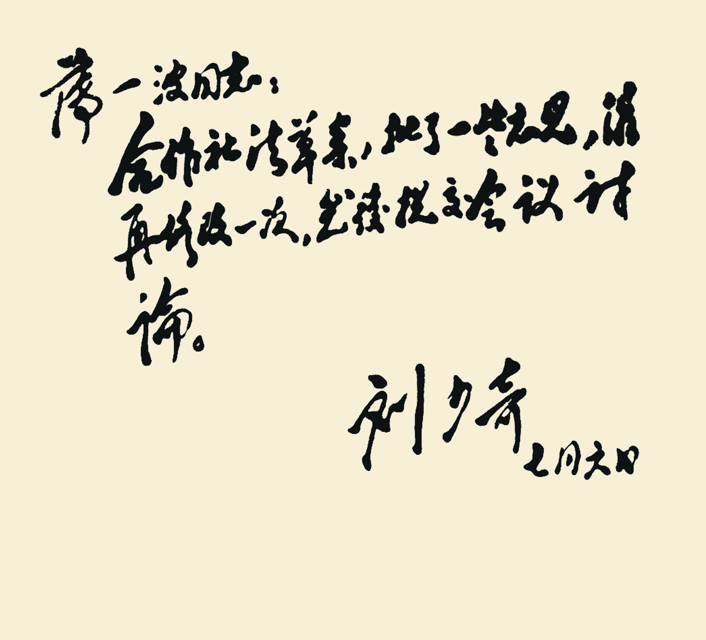 薄一波同志：
合作社法草案，批了一些意见，请
再修改一次，然後提交会议讨
论。
刘少奇
七月六日